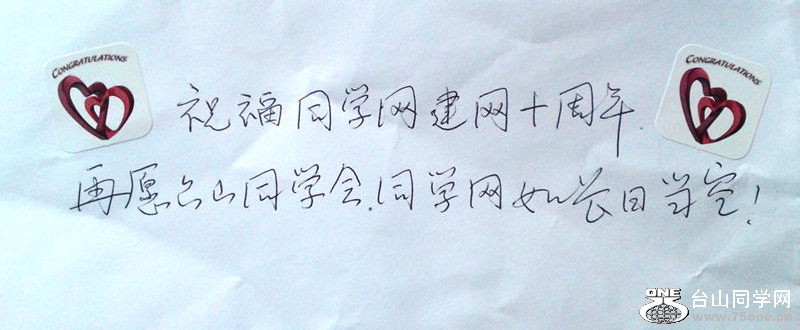 CONGRATULATIONS
CONGRATULATIONS
祝福同学网建网十周年.
再愿台山同学会.同学网如长日当空!
ONE
台山同学网
www.75one.cn